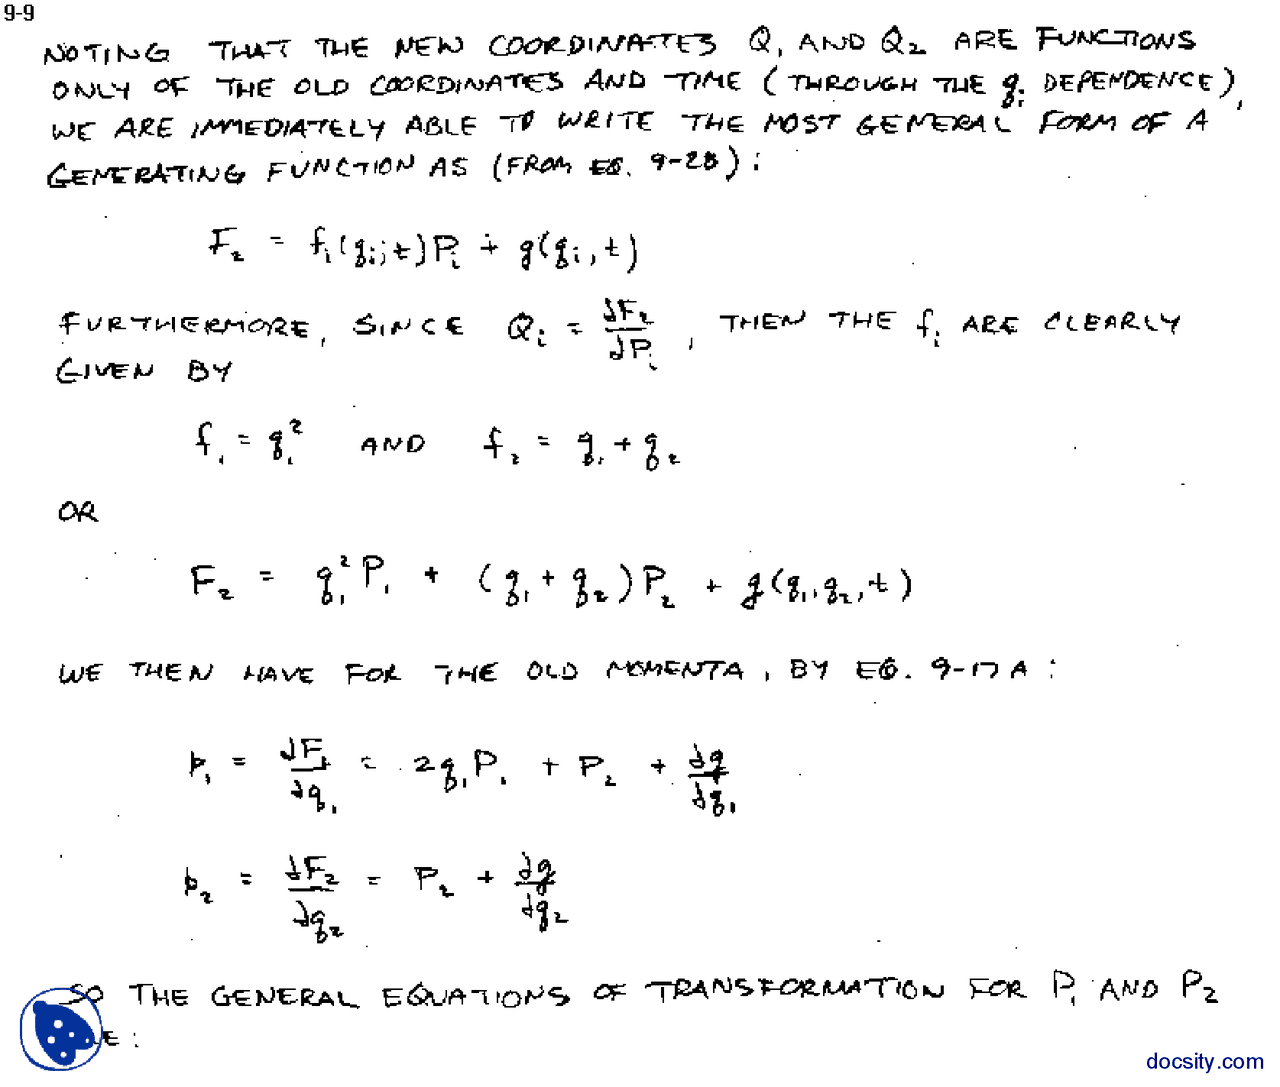 9-9
NOTING THAT THE NEW COORDINATES Q₁ AND Q₂ ARE FUNCTIONS
ONLY OF THE OLD COORDINATES AND TIME (THROUGH THE qᵢ DEPENDENCE),
WE ARE IMMEDIATELY ABLE TO WRITE THE MOST GENERAL FORM OF A
GENERATING FUNCTION AS (FROM EQ. 9-28):
F₂ = fᵢ(qᵢ; t)Pᵢ + g(qᵢ, t)
FURTHERMORE, SINCE Qᵢ = ∂F₂/∂Pᵢ, THEN THE fᵢ ARE CLEARLY
GIVEN BY
f₁ = q₁² AND f₂ = q₁ + q₂
OR
F₂ = q₁²P₁ + (q₁ + q₂)P₂ + g(q₁, q₂, t)
WE THEN HAVE FOR THE OLD MOMENTA, BY EQ. 9-17A:
p₁ = ∂F₂/∂q₁ = 2q₁P₁ + P₂ + ∂g/∂q₁
p₂ = ∂F₂/∂q₂ = P₂ + ∂g/∂q₂
SO THE GENERAL EQUATIONS OF TRANSFORMATION FOR P₁ AND P₂
E:
docsity.com